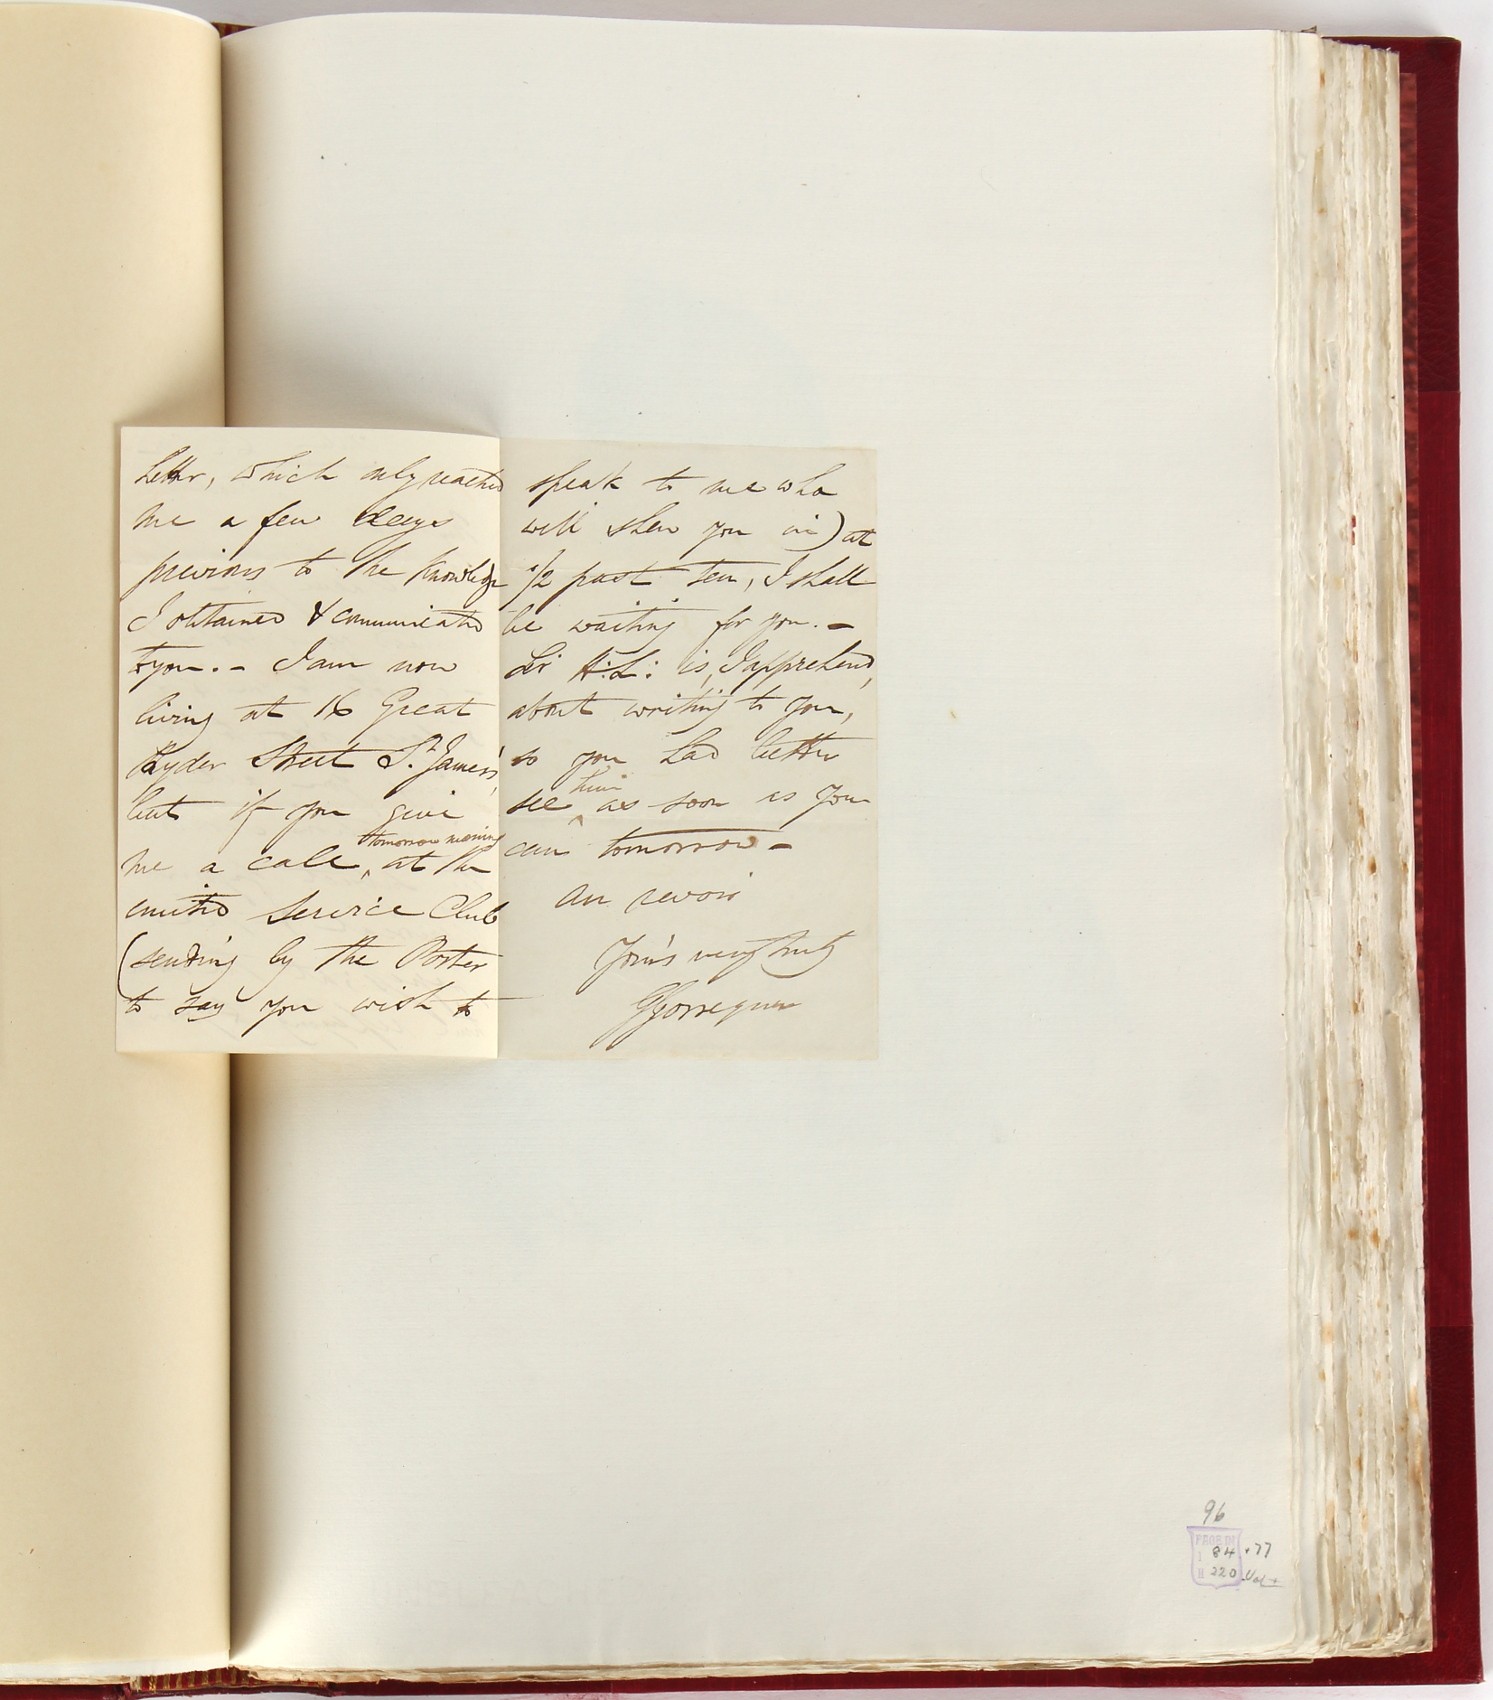 Letter, which only reached
me a few days
previous to the knowledge
I obtained & communicated
to you. - I am now
living at 16 Great
Ryder Street St. James's,
but if you give
tomorrow morning
me a call, at the
united Service Club
(sending by the Porter
to say you wish to
speak to me who
will shew you in) at
1/2 past ten, I shall
be waiting for you. -
Sir H: L: is, I apprehend,
about writing to you,
so you had better
him
see as soon as you
can tomorrow -
au revoir
Your's very truly
GGorrequer
96
84 .77
220